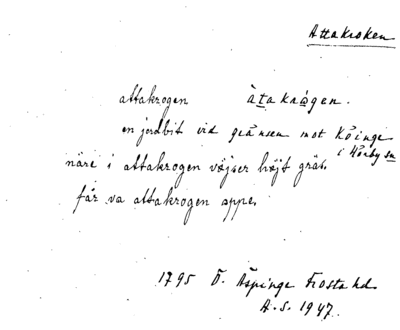 Attakroken
attakrogen àtakrågen.
en jordbit vid gränsen mot Köinge
i Hörby sn
näre i attakrogen växjer höjt gräs,
får va attakrogen oppe.
1795 Ö. Äspinge Frosta hd
A.S. 1947.